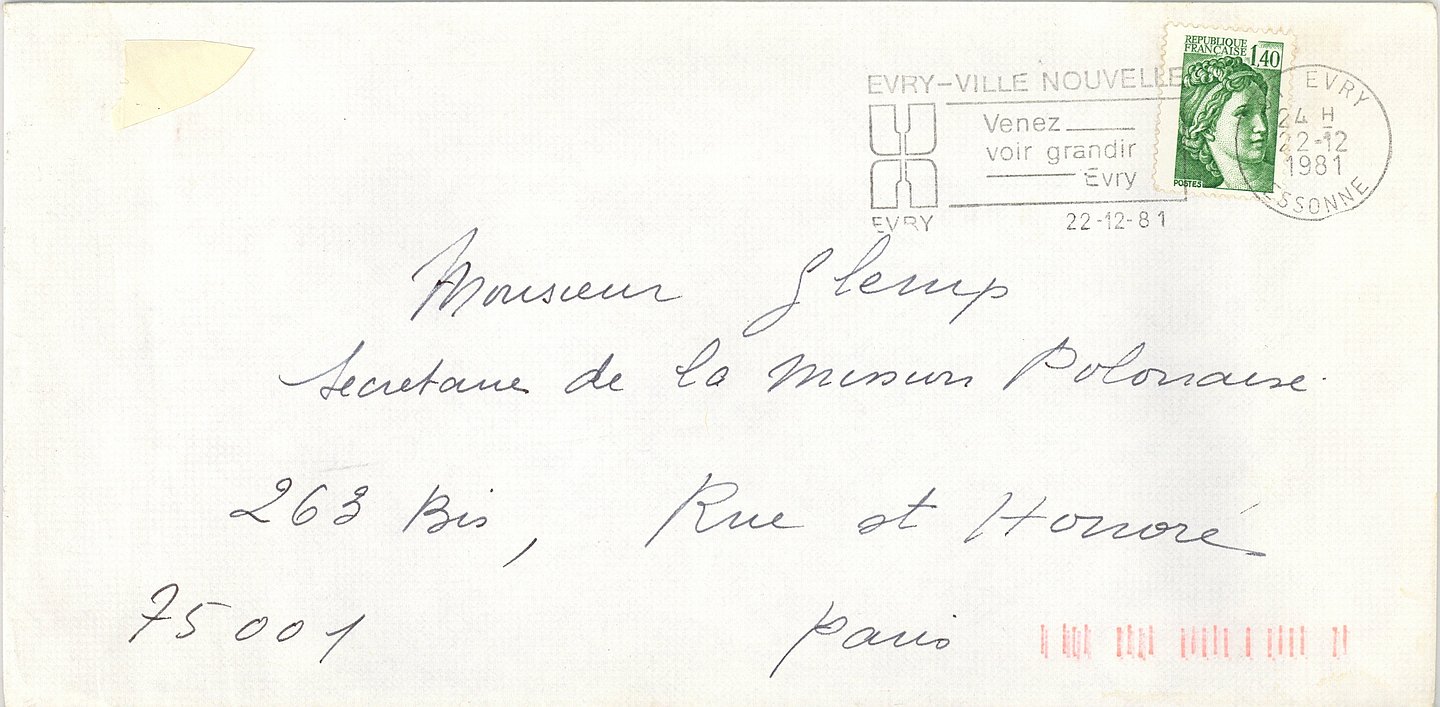 REPUBLIQUE
FRANÇAISE
1,40
POSTES
EVRY-VILLE NOUVELLE
Venez
voir grandir
Evry
EVRY
22-12-81
EVRY
24 H
22-12
1981
ESSONNE
Monsieur Glemp
Secretaire de la Mission Polonaise.
263 Bis, Rue st Honoré
75001 Paris